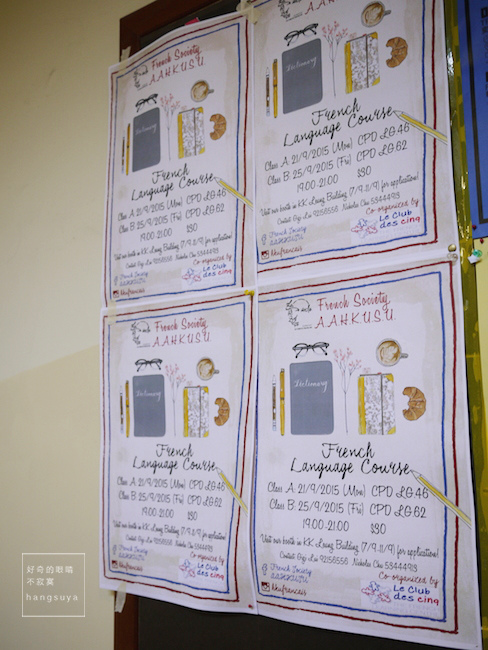 French Society
A.A.H.K.U.S.U
Dictionary
French
Language Course
Class A: 21/9/2015 (Mon) CPD LG.46
Class B: 25/9/2015 (Fri) CPD LG.62
19:00-21:00 $30
Visit our booth in KK Leung Building (7/9, 11/9) for applications!
Contact: Gigi Lui 92156556 Nicholas Chu 55444913
French Society
AAHKUSU
Hkufrancais
Co-organized by
Le Club
des cinq
Dictionary
French
Language Course
Class A: 21/9/2015 (Mon) CPD LG.46
Class B: 25/9/2015 (Fri) CPD LG.62
19:00-21:00 $30
Visit our booth in KK Leung Building (7/9, 11/9) for applications!
French Society
Hkufrancais
Co-organized by
Le Club
des cinq
French Society
A.A.H.K.U.S.U
Dictionary
French
Language Course
Class A: 21/9/2015 (Mon) CPD LG.46
Class B: 25/9/2015 (Fri) CPD LG.62
19:00-21:00 $30
Visit our booth in KK Leung Building (7/9, 11/9) for applications!
French Society
AAHKUSU
Hkufrancais
Co-organized by
Le Club
des cinq
French Society
A.A.H.K.U.S.U
Dictionary
French
Language Course
Class A: 21/9/2015 (Mon) CPD LG.46
Class B: 25/9/2015 (Fri) CPD LG.62
19:00-21:00 $30
Visit our booth in KK Leung Building (7/9, 11/9) for applications!
French Society
AAHKUSU
Hkufrancais
Co-organized by
Le Club
des cinq
好奇的眼睛
不寂寞
hangsuya